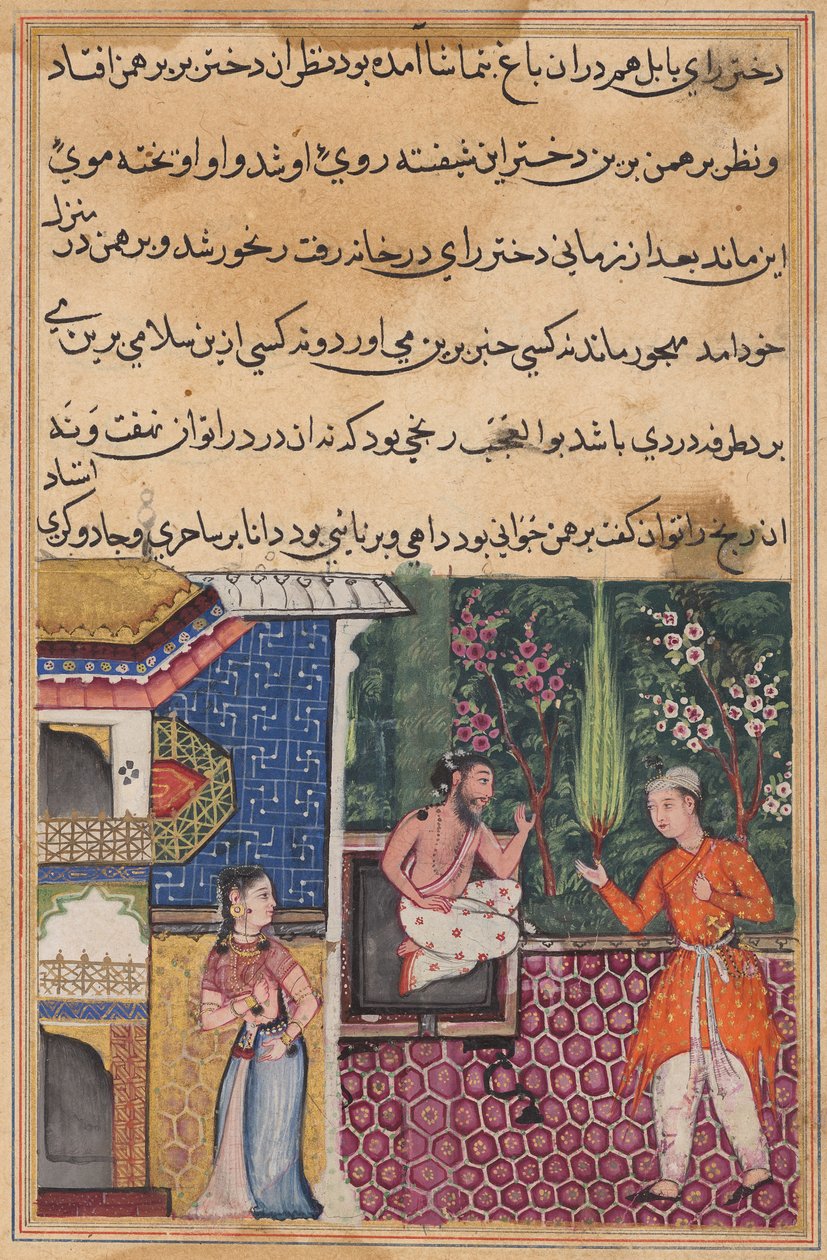 دختر راي بابل هم دران باغ بتماشا آمده بود نظر ان دختر بر برهمن افتاد
و نظر برهمن برين دختر اين شيفته رويِ او شد و او اوبخته مويِ
اين ماند بعد از زماني دختر راي در خانه رفت رنجور شد و برهمن در منزل
خود امد مهجور ماند نه كسي خبر برين مي اورد و نه كسي ازين سلامي برين مي
برد طرفه دردي باشد بوالعجب رنجي بود كه نه ان درد را توان نهفت وَ نَه
ان رنج را توان كفت برهمن جُواني بود داهي و برنائي بود دانا بر ساحري و جادوكري استاد